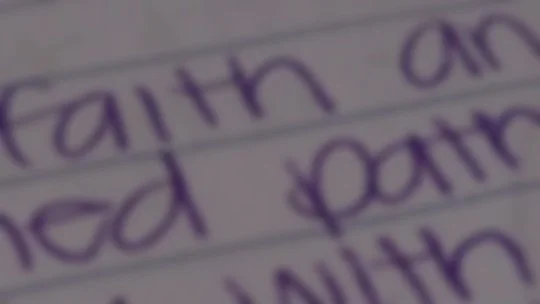 faith an
ied path
with